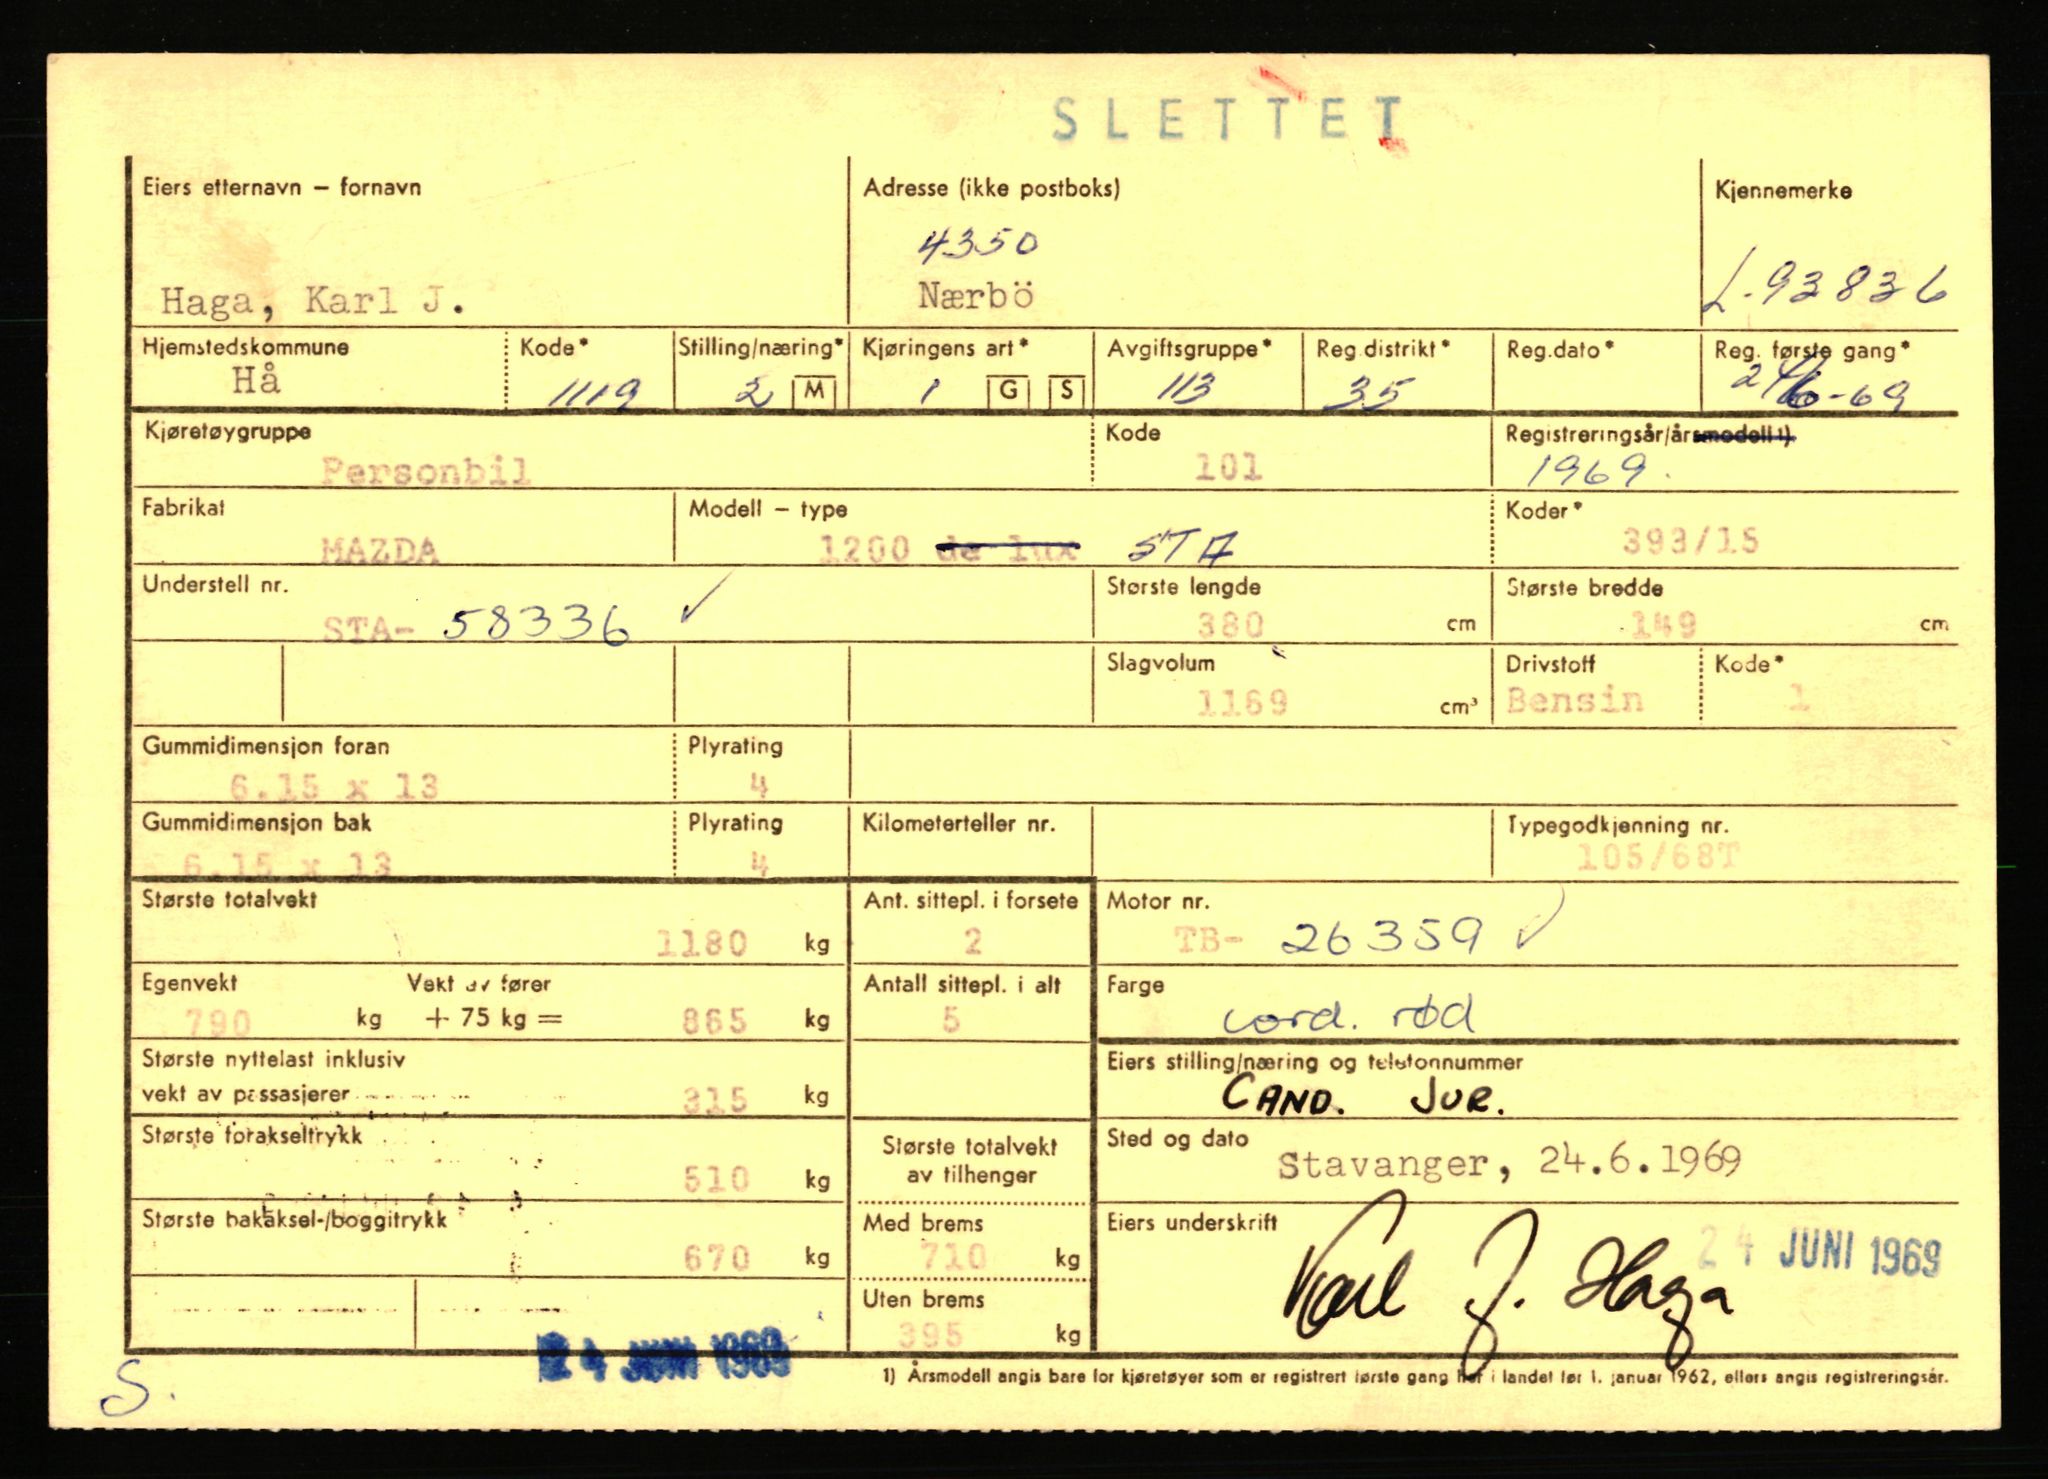 SLETTET
Eiers etternavn – fornavn Adresse (ikke postboks) Kjennemerke
4350
Haga, Karl J. Nærbö L-93836
Hjemstedskommune Kode* Stilling/næring* Kjøringens art* Avgiftsgruppe* Reg.distrikt* Reg.dato* Reg. første gang*
Hå 1119 2 M 1 G S 113 35 24/6-69
Kjøretøygruppe Kode Registreringsår/årsmodell 1)
Personbil 101 1969.
Fabrikat Modell – type Koder*
MAZDA 1200 de lux STA 393/15
Understell nr. Største lengde Største bredde
STA- 58336 ✓ 380 cm 149 cm
Slagvolum Drivstoff Kode*
1169 cm³ Bensin 1
Gummidimensjon foran Plyrating
6.15 x 13 4
Gummidimensjon bak Plyrating Kilometerteller nr. Typegodkjenning nr.
6.15 x 13 4 105/68T
Største totalvekt Ant. sittepl. i forsete Motor nr.
1180 kg 2 TB- 26359 ✓
Egenvekt Vekt av fører Antall sittepl. i alt Farge
790 kg + 75 kg = 865 kg 5 cord. rød
Største nyttelast inklusiv Eiers stilling/næring og telefonnummer
vekt av passasjerer 315 kg CAND. JUR.
Største forakseltrykk Største totalvekt Sted og dato
510 kg av tilhenger Stavanger, 24.6.1969
Største bakaksel-/boggitrykk Med brems Eiers underskrift
670 kg 710 kg Karl J. Haga 24 JUNI 1969
Uten brems
395 kg
24 JUNI 1969
S.
1) Årsmodell angis bare for kjøretøyer som er registrert første gang her i landet før 1. januar 1962, ellers angis registreringsår.